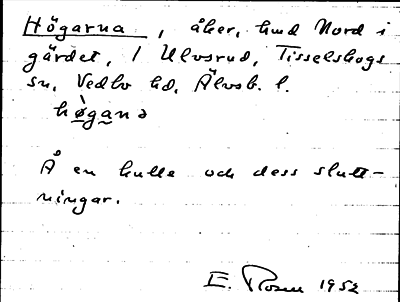 Högarna, åker, hmd Nord i
gärdet, 1 Ulvsrud, Tisselskogs
sn, Vedbo hd, Älvsb. l.
hø̀gana
Å en kulle och dess slutt-
ningar.
E. Rosen 1952